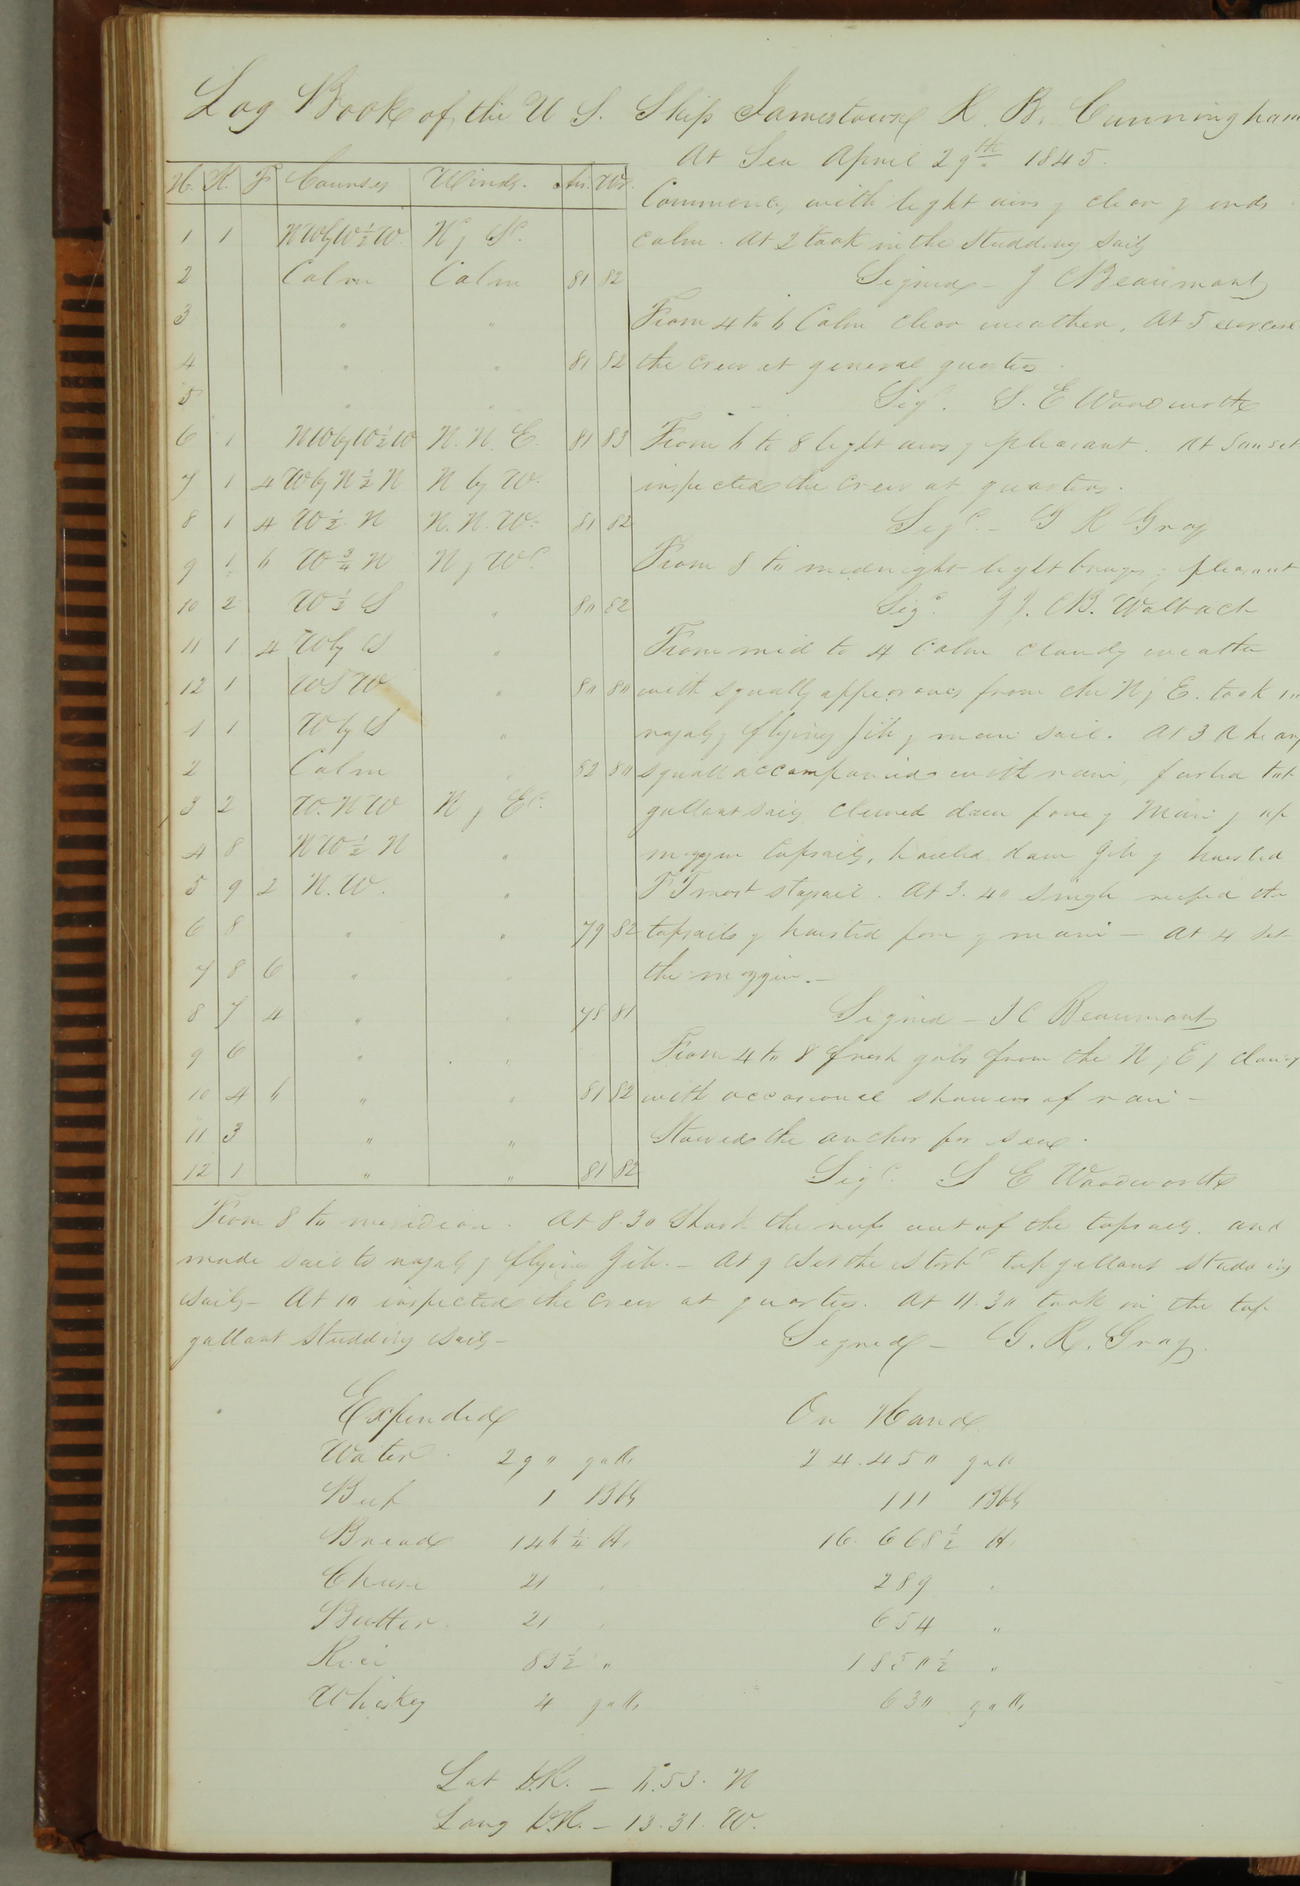 Log Book of the U S. Ship Jamestown R. B. Cunningham
At Sea April 29th 1845.
H. K. F Courses Winds. Air. Wr.
Commences with light airs & clear & ends
1 1 NWbyW½W. N & Sd.
calm. At 2 took in the Studding Sails
2 Calm Calm 81 82
Signed - J C Beaumont
3 " "
From 4 to 6 Calm clear weather, At 5 exercised
4 " " 81 82
the crew at general quarters.
5 " "
Sigd. S. E Woodworth
6 1 NWbyW½W N. N. E. 81 83
From 6 to 8 light airs & pleasant. At Sunset
7 1 4 WbyN½N N by W.
inspected the Crew at quarters.
8 1 4 W½N N. N. W. 81 82
Sigd. - G R Gray
9 1 6 W¾N N & Wd.
From 8 to midnight light breezes & pleasant
10 2 W½S " 80 82
Sigd. J. J. B. Walbach
11 1 4 Wby S "
From mid to 4 Calm cloudy weather
12 1 WSW " 80 80
with squally appearances from the N & E. took in
1 1 Wby S "
royals & flying Jib & main sail. At 3 A heavy
2 Calm " 82 80
squall accompanied with rain, furled top
3 2 W.NW N & Ed.
gallant sails clewed down fore & Main &
4 8 NW½N "
mizzen topsails, hauled down Jib & hoisted
5 9 2 N.W. "
F T mast staysail. At 3.40 single reefed the
6 8 " " 79 82
topsails & hoisted fore & main - At 4 set
7 8 6 " "
the mizzen. -
8 7 4 " " 78 81
Signed - J C Beaumont
9 6 " "
From 4 to 8 fresh gales from the N & E & cloudy
10 4 6 " " 81 82
with occasional showers of rain -
11 3 " "
Stowed the anchor for sea.
12 1 " " 81 82
Sigd. S E Woodworth
From 8 to meridian. At 8.30 Shook the reefs out of the topsails. and
made sail to royals & flying Jib. - At 9 Set the Starbd top gallant studding
sails - At 10 inspected the Crew at quarters. At 11.30 took in the top
gallant Studding sails -
Signed - G. R. Gray.
Expended On Hand
Water 290 galls 24.450 gall
Beef 1 Bbl 111 Bbls
Bread 146¼ lbs 16.668½ lbs
Cheese 21 " 289 "
Butter 21 " 654 "
Rice 83½ " 1850½ "
Whiskey 4 galls 630 galls
Lat D.R. - 6.53. N
Long D.R. - 13.31. W.